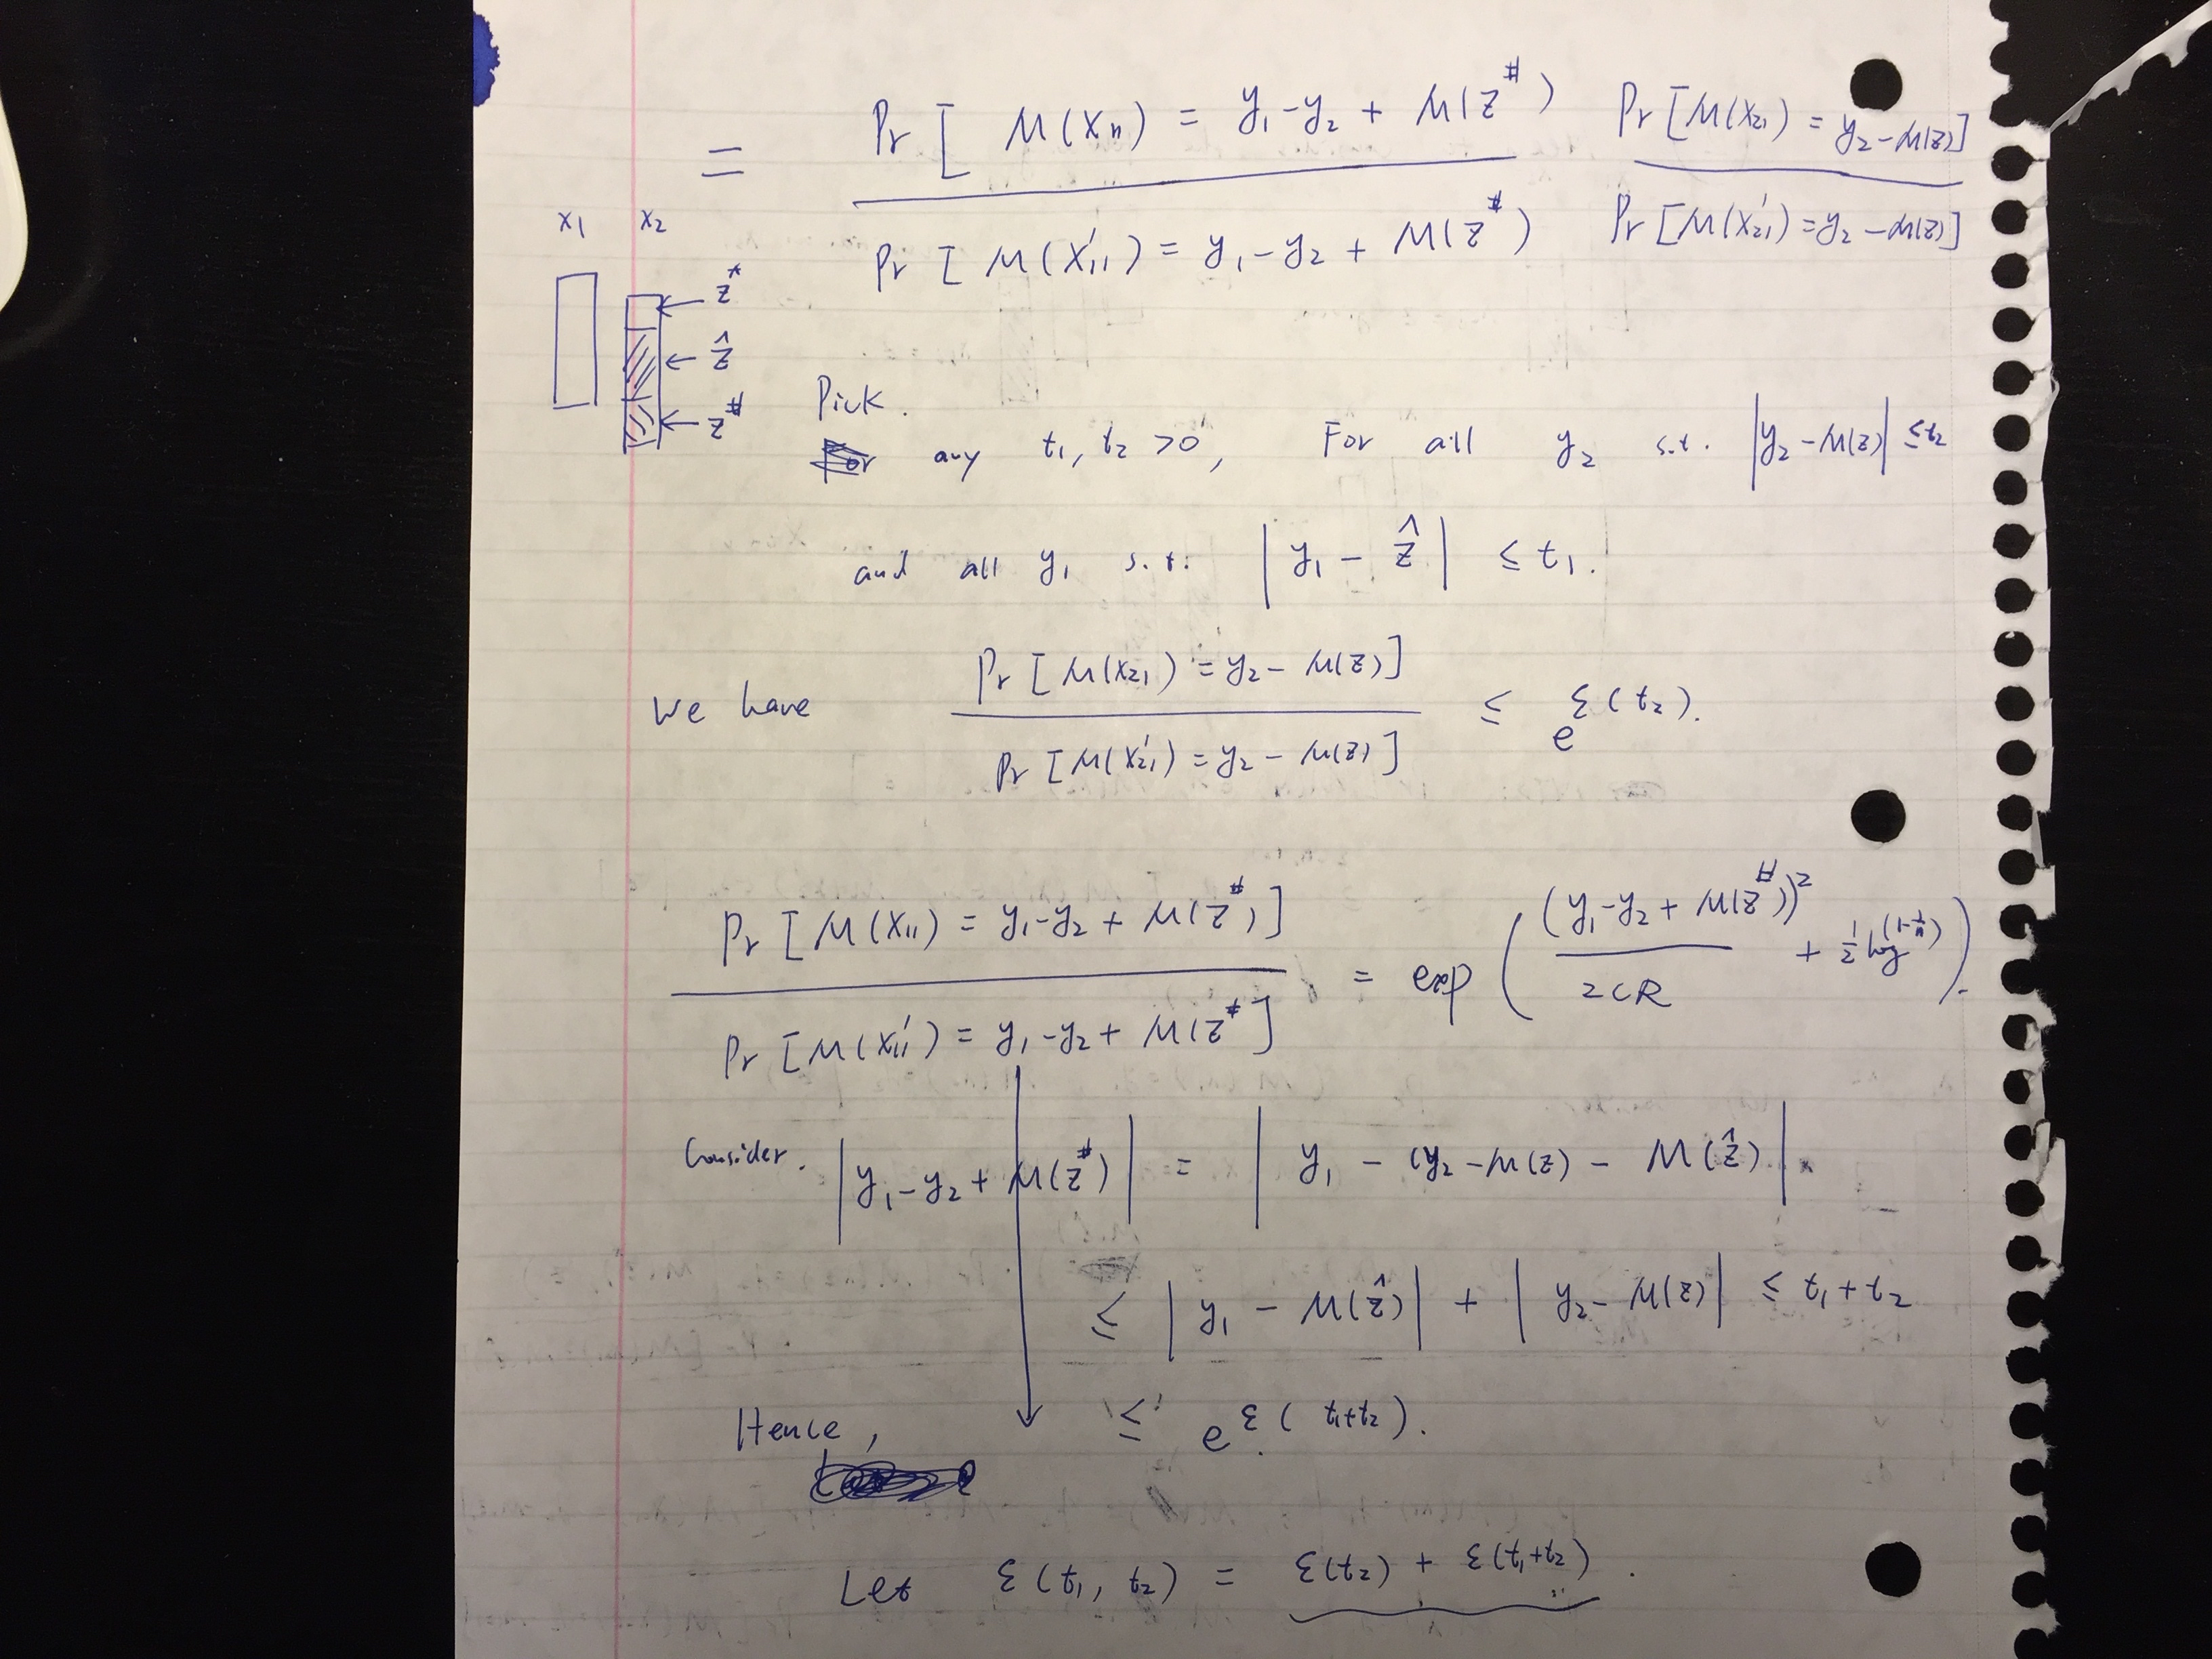 = Pr [ M(X₁₁) = y₁-y₂ + M(Z^#) / Pr [ M(X'₁₁) = y₁-y₂ + M(Z^#) Pr [M(X₂₁) = y₂-M(Z)] / Pr [M(X'₂₁) = y₂-M(Z)]
X₁ X₂
← Z*
← Ẑ
← Z^#
Pick.
any t₁, t₂ >0, For all y₂ s.t. |y₂ - M(Z)| ≤ t₂
and all y₁ s.t. | y₁ - Ẑ | ≤ t₁.
We have Pr [ M(X₂₁) = y₂ - M(Z)] / Pr [ M(X'₂₁) = y₂ - M(Z) ] ≤ e^ε(t₂).
Pr [ M(X₁₁) = y₁-y₂ + M(Z^#) ] / Pr [ M(X'₁₁) = y₁-y₂ + M(Z^#] = exp ( (y₁-y₂ + M(Z^#))² / 2CR + ½ log^(1-1/n) ).
Consider. | y₁-y₂ + M(Z^#) | = | y₁ - (y₂ - M(Z) - M(Ẑ) |.
≤ | y₁ - M(Ẑ) | + | y₂ - M(Z) | ≤ t₁ + t₂
Hence, ≤ e^ε( t₁+t₂ ).
Let ε (t₁, t₂) = ε(t₂) + ε(t₁+t₂) .